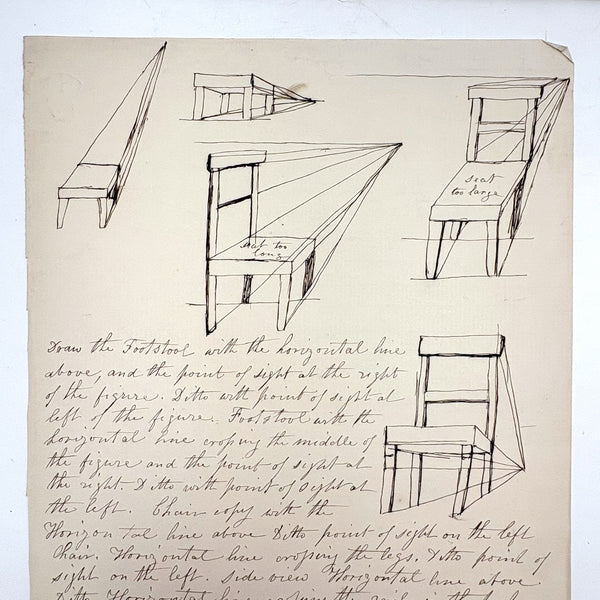 seat
too large
seat too
long
Draw the Footstool with the horizontal line
above, and the point of sight at the right
of the figure. Ditto with point of sight at
left of the figure. Footstool with the
horizontal line crossing the middle of
the figure and the point of sight at
the right. Ditto with point of sight at
the left. Chair copy with the
Horizontal line above Ditto point of sight on the left
Chair. Horizontal line crossing the legs. Ditto point of
sight on the left. Side view Horizontal line above
Ditto Horizontal line